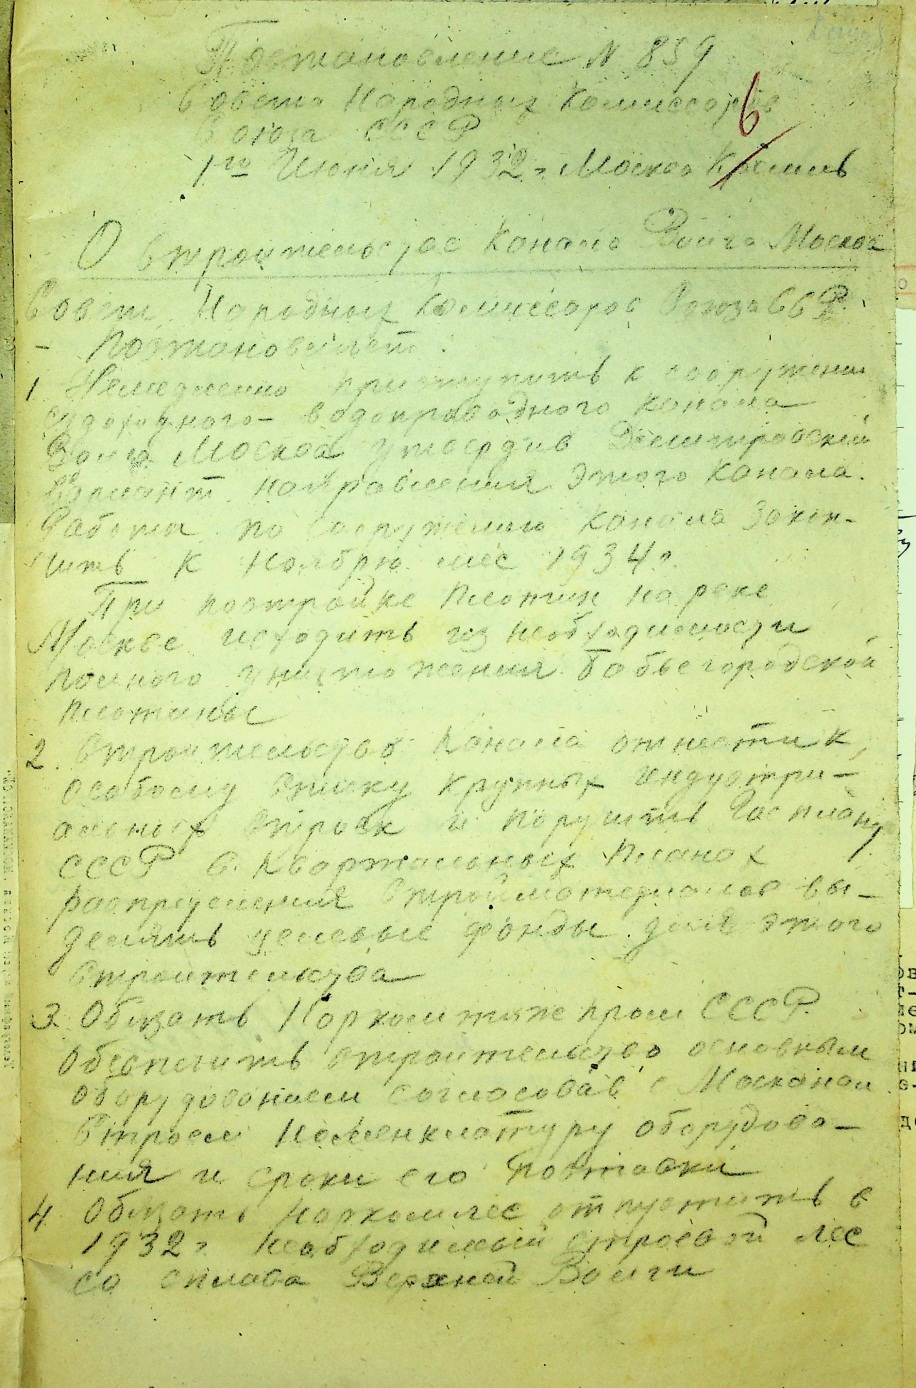 Постановление N 859
Совета Народных Комиссаров
6
Союза СССР
1го Июня 1932 г Москва Кремль
О строительстве Канала Волга Москва
Совет Народных Комиссаров Союза ССР
- Постановляет
1 Немедленно приступить к сооружению
судоходного - водопроводного канала
Волга Москва утвердив Дмитровский
вариант направления этого канала.
Работы по сооружению канала закон-
чить к Ноябрю мес 1934 г.
При постройке плотин на реке
Москве исходить из необходимости
полного уничтожения Бабьегородской
плотины
2. Строительство канала отнести к
особому списку крупных индустри-
альных строек и поручить Госплану
СССР в Квартальных планах
распределения Стройматериалов вы-
делять целевые фонды для этого
строительства
3. Обязать Наркомтяжпром СССР
Обеспечить строительство основным
оборудованием согласовав с Москанал
Строем номенклатуру оборудова-
ния и сроки его поставки
4. Обязать Наркомлес отпустить в
1932 г. необходимый строевой лес
со сплава Верхней Волги